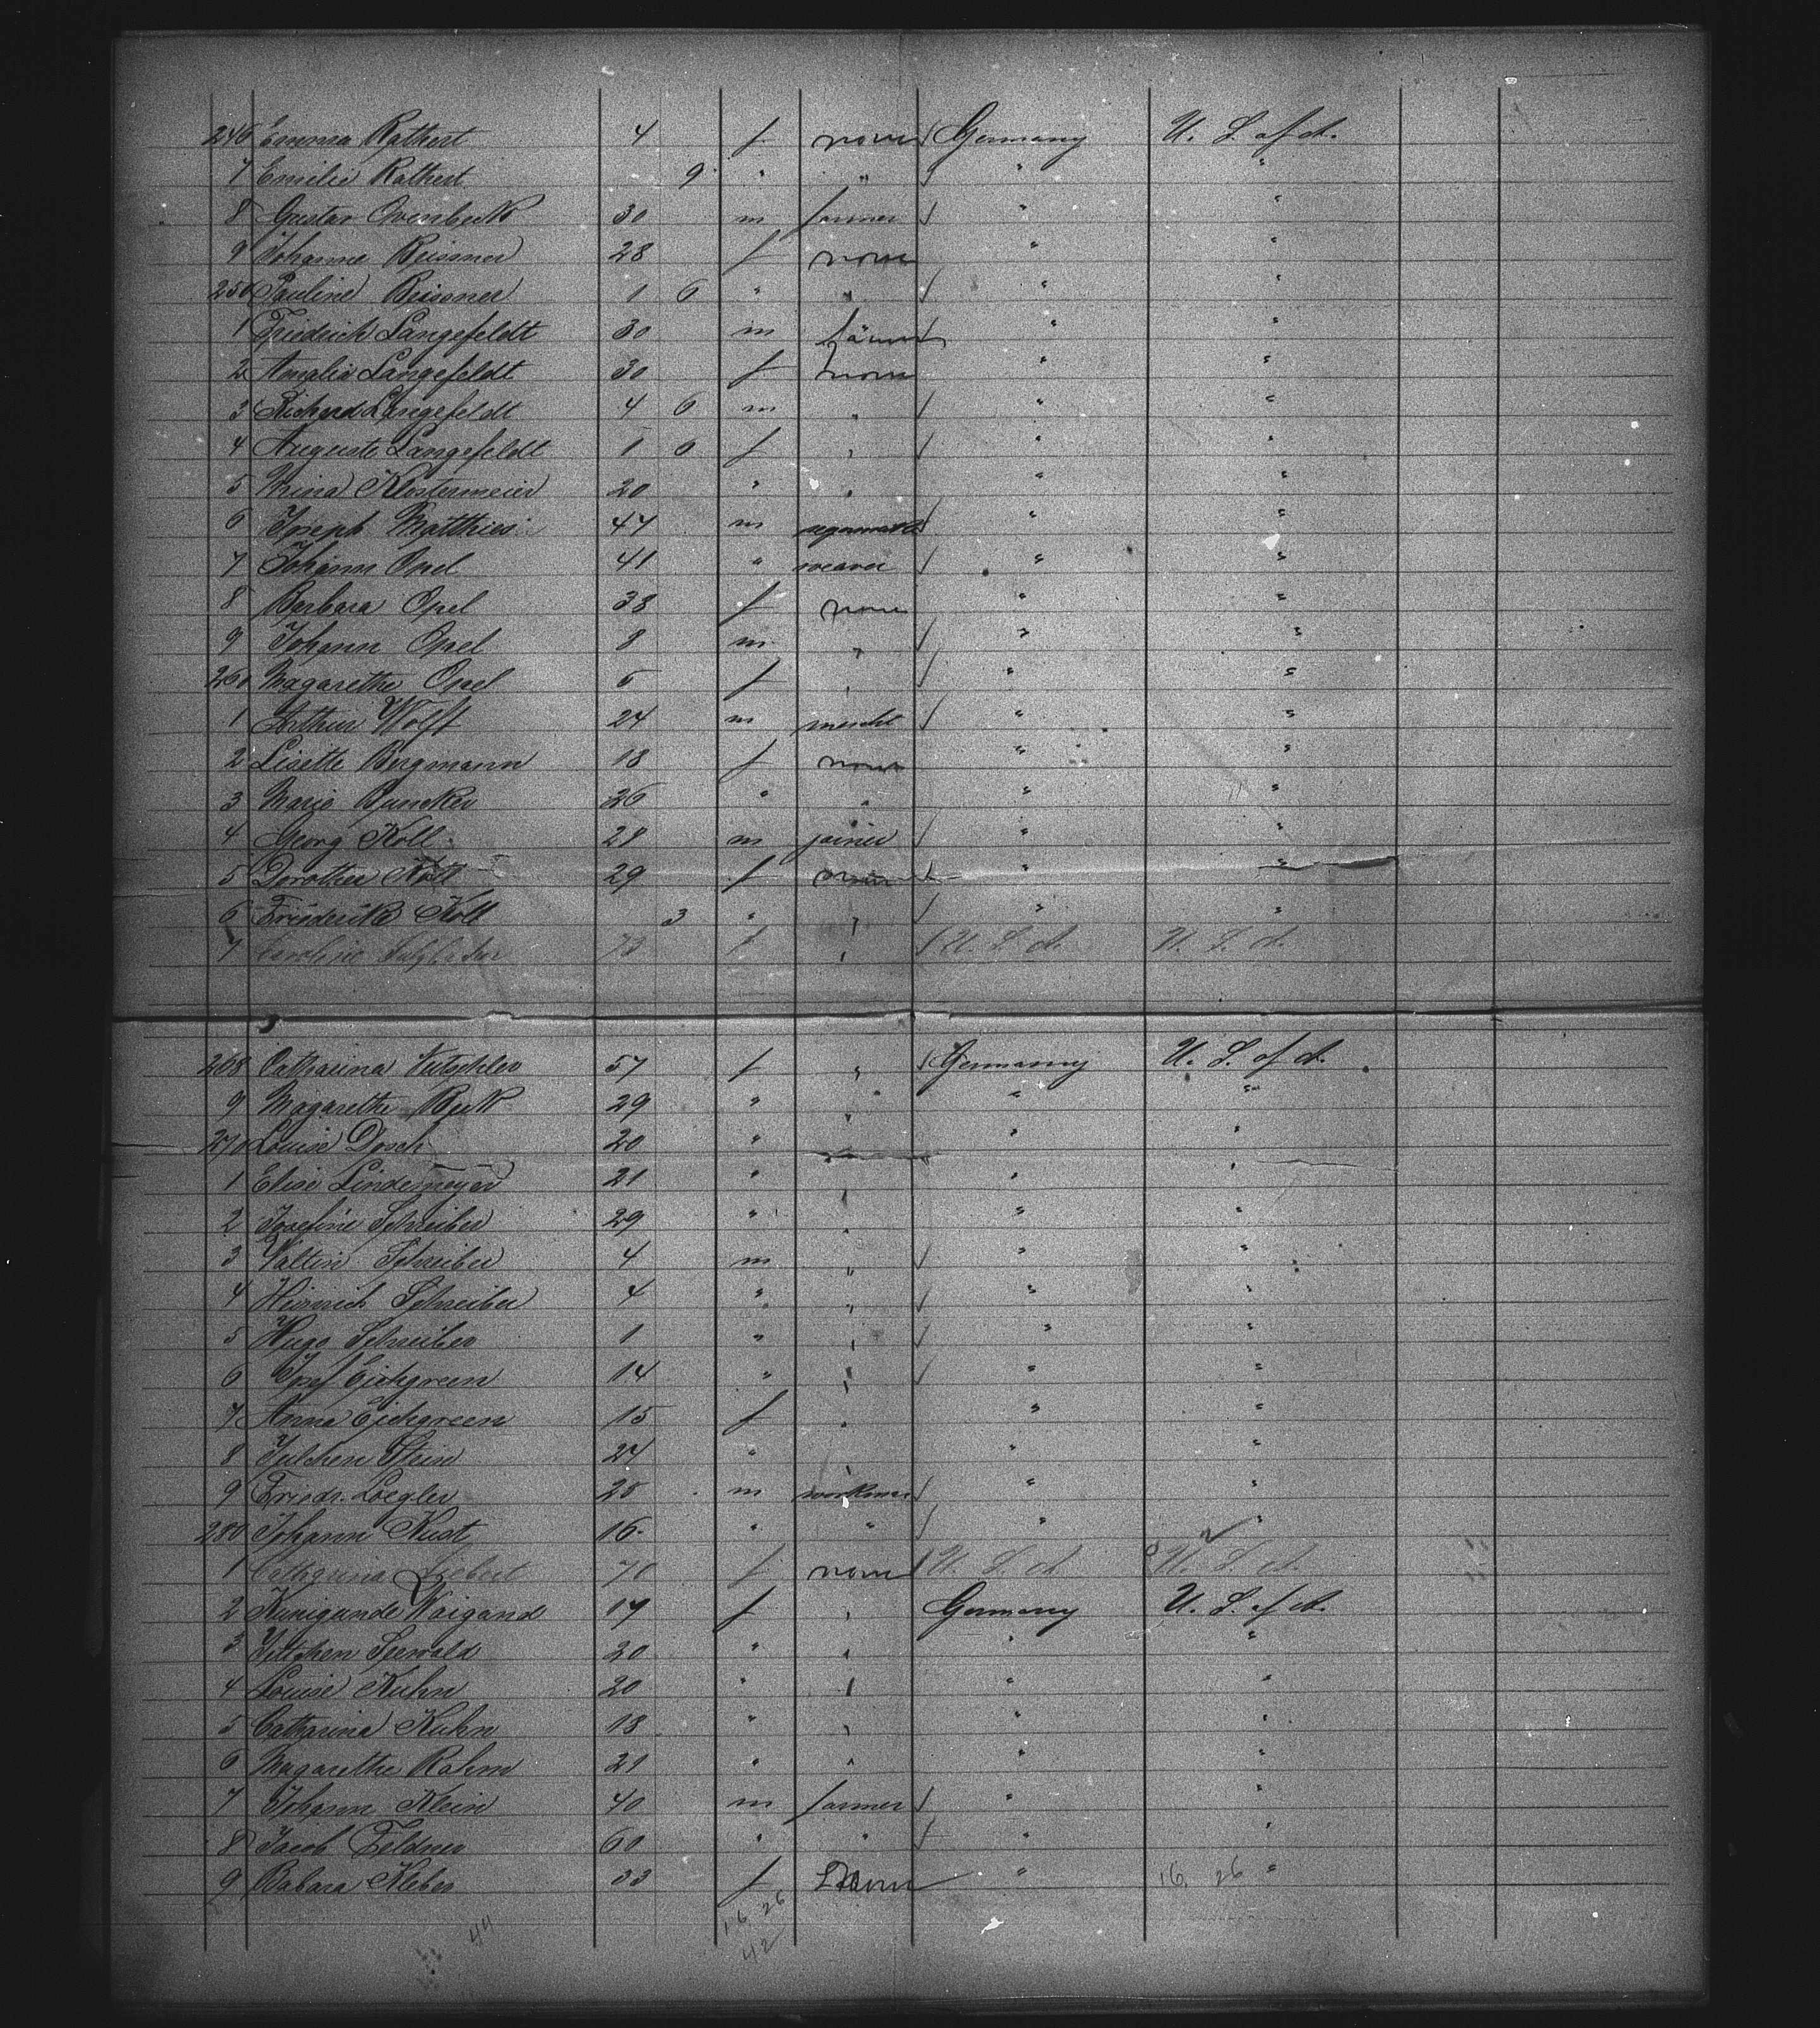 246 Emma Rathert 4 f none Germany U. S. of A.
7 Emilie Rathert 9 " " " "
8 Gustav Ovenbeck 30 m farmer " "
9 Johanne Beissner 28 f none " "
250 Pauline Beissner 1 6 " " " "
1 Friedrich Langefeldt 30 m farmer " "
2 Amalie Langefeldt 30 f none " "
3 Richard Langefeldt 4 6 m " " "
4 Auguste Langefeldt 1 6 f " " "
5 Mina Klostermeier 20 " " " "
6 Joseph Matthies 44 m " "
7 Johann Opel 41 " weaver " "
8 Barbara Opel 38 f none " "
9 Johann Opel 8 m " " "
260 Magarethe Opel 5 f " " "
1 Arthur Wolff 24 m mercht " "
2 Lisette Bergmann 18 f none " "
3 Marie Buncker 26 " " " "
4 Georg Koll 28 m joiner " "
5 Dorothea Koll 29 f none " "
6 Friederike Koll 3 " " " "
7 Caroline 73 f " U. S. A. U. S. A.
268 Catharina Nutschler 57 f " Germany U. S. of A.
9 Magarethe Beck 29 " " " "
270 Louise Dosch 20 " " " "
1 Elise Lindemeyer 21 " " " "
2 Josefine Schreiber 29 " " " "
3 Valtin Schreiber 4 m " " "
4 Heinrich Schreiber 4 " " " "
5 Hugo Schreiber 1 " " " "
6 Josef Eichgreen 14 " " " "
7 Anna Eichgreen 15 f " " "
8 Julchen Stein 24 " " " "
9 Friedr. Loegler 25 m workman " "
280 Johann Kust 16 " " " "
1 Catharina Liebert 70 f none U. S. A. U. S. A.
2 Kunigunde Waigand 17 f " Germany U. S. of A.
3 Jettchen Seewald 20 " " " "
4 Louise Kuhn 20 " " " "
5 Catharina Kuhn 18 " " " "
6 Magarethe Rahm 21 " " " "
7 Johann Klein 40 m farmer " "
8 Jacob Feldner 60 " " " "
9 Babara Kleber 33 f none " 16 26 "
44 16 26
42